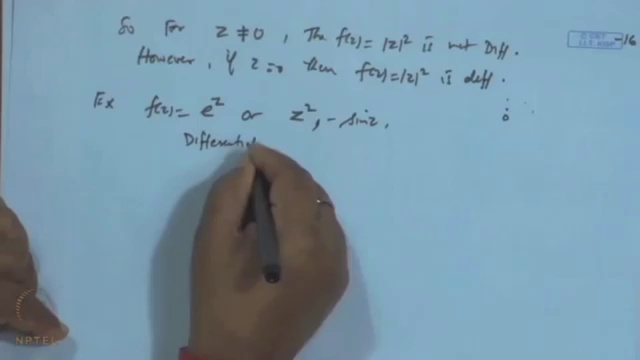 So For z ≠ 0, The f(z) = |z|² is not Diff.
However, if z = 0 then f(z) = |z|² is diff.
Ex f(z) = e^z or z², - sin z.
Differentia
NPTEL